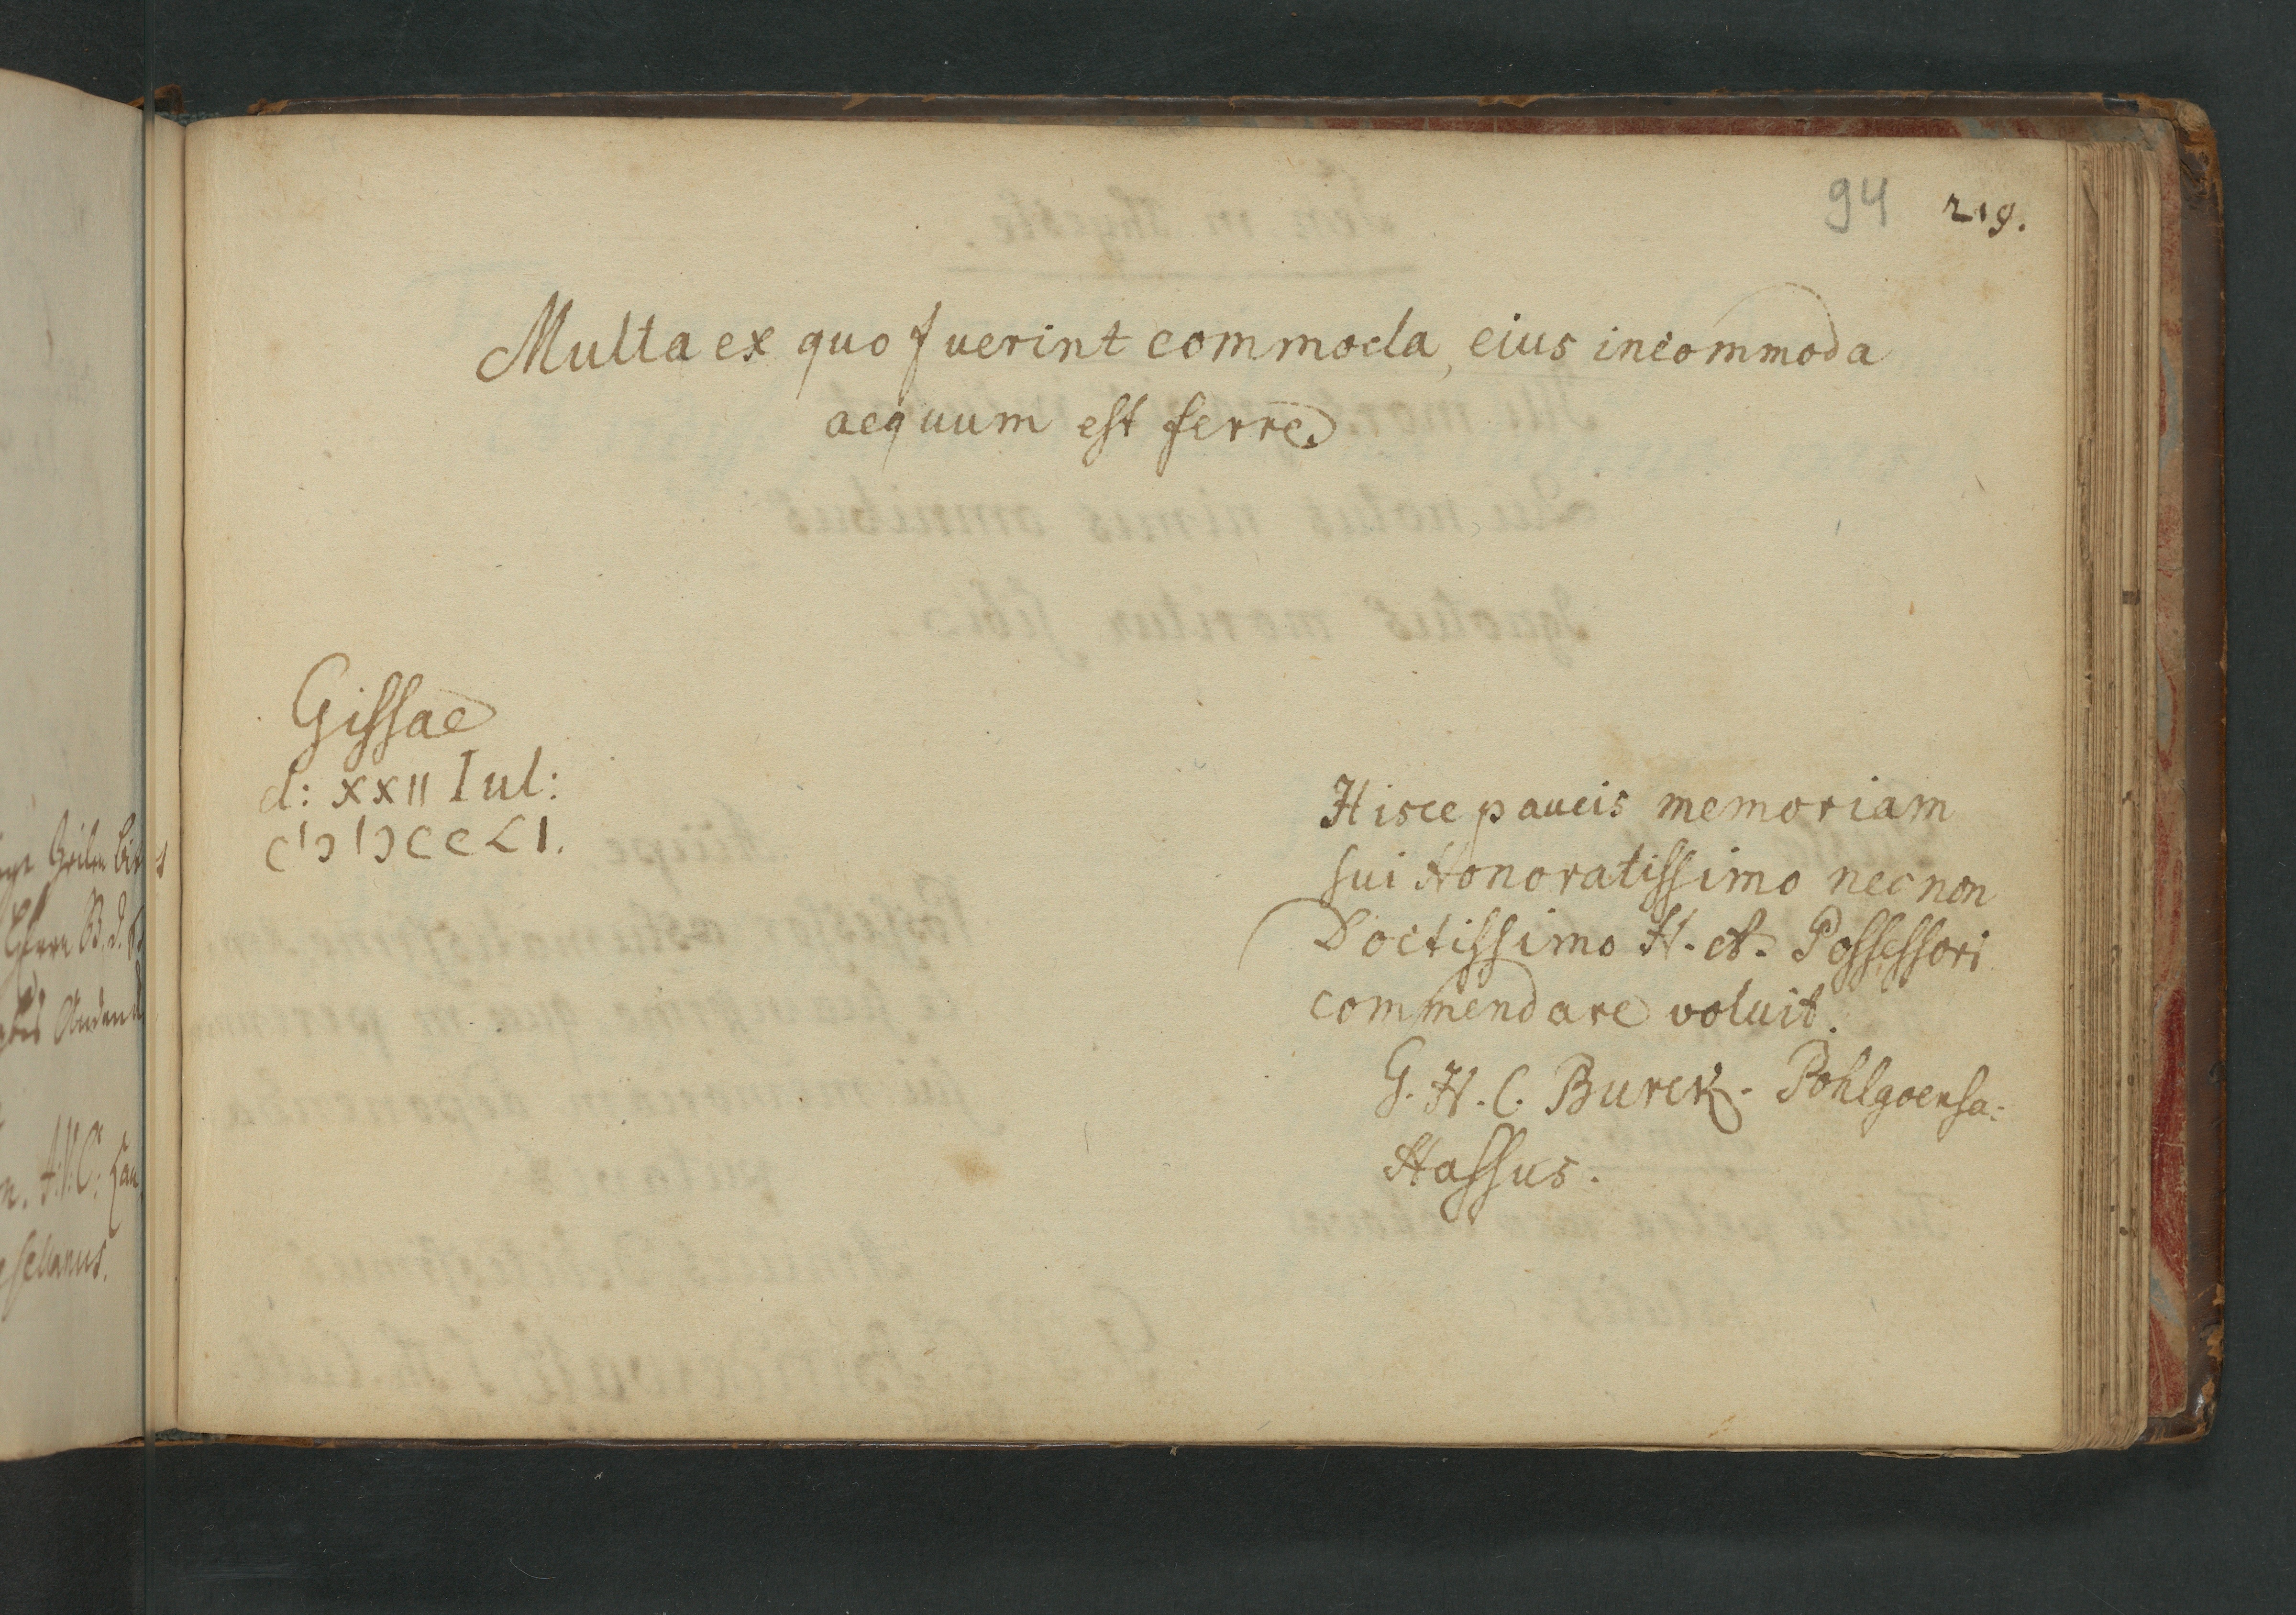 94 219.
Multa ex quo fuerint commoda, eius incommoda
aequum est ferre.
Gissae
d: XXII Iul:
CIƆIƆCCLI.
Hisce paucis memoriam
sui Honoratissimo nec non
Doctissimo H. A. Possessori
commendare voluit.
G. H. C. Burck. Pohlgoensa-
Hassus.